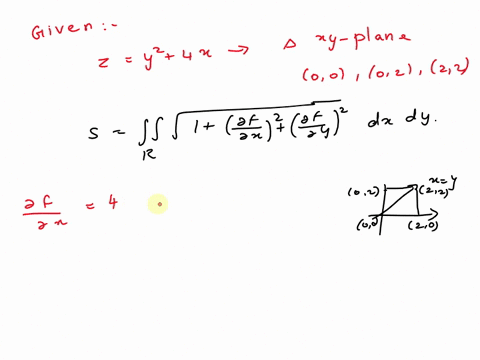 Given :-
z = y² + 4x → △ xy-plane
(0,0) , (0,2) , (2,2)
S = ∬ √(1 + (∂F/∂x)² + (∂F/∂y)²) dx dy.
R
∂F/∂x = 4
x=y
(0,2) (2,2)
(0,0) (2,0)